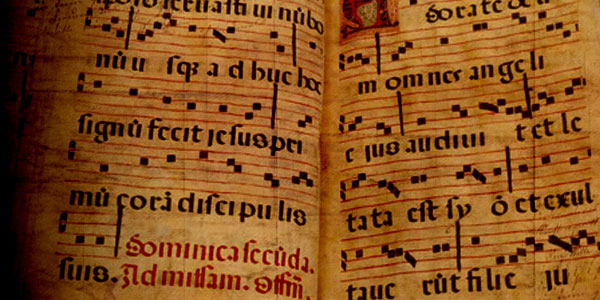 seruasti ui nũ bo
nũ u sqʒ a d huc hoc
signũ fecit jesus pri
mũ corã discipu lis
dominica secũda.
suis. Ad missam. Offm̃.
dorate
m omnes an ge li
e ius audiuit et le
ta ta est sy õ et exul
taue rũt filie ju